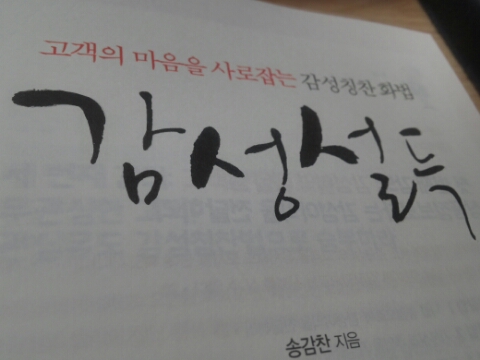 고객의 마음을 사로잡는 감성칭찬 화법
감성설득
송감찬 지음